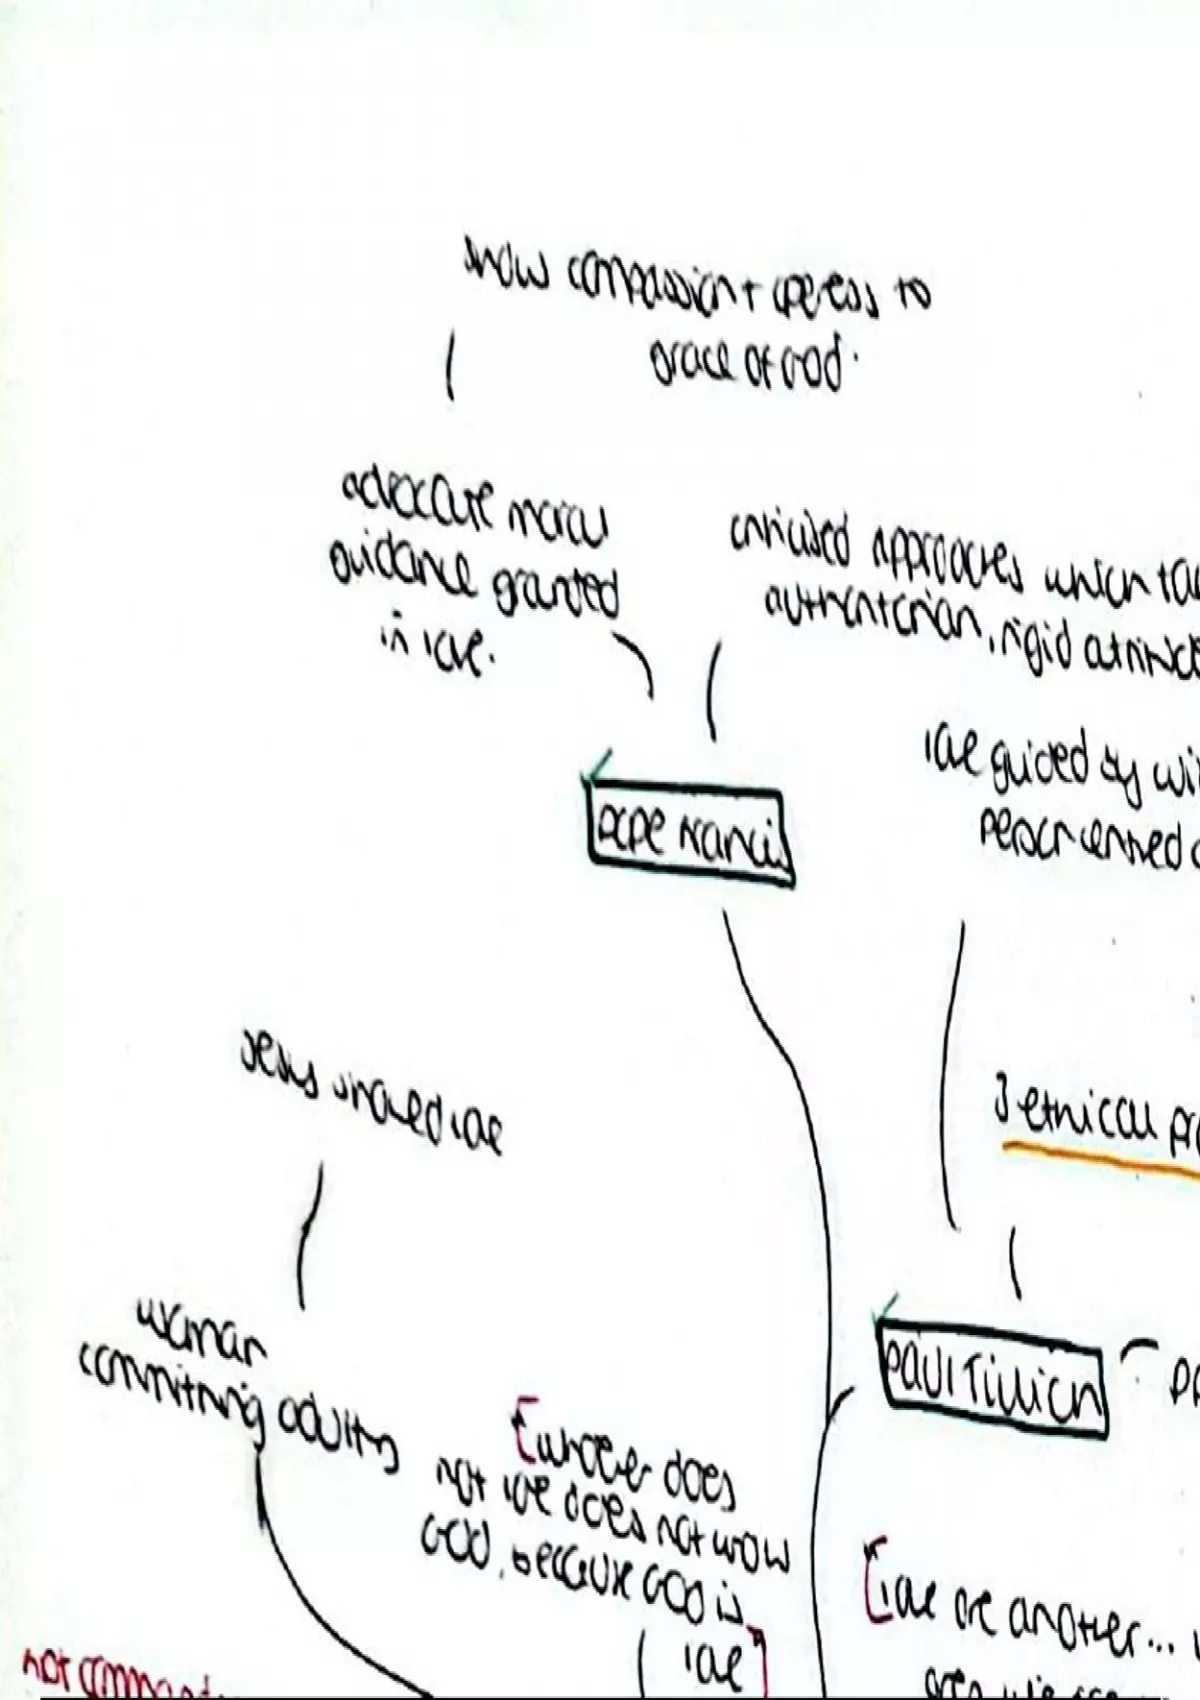 show compassion + openess to
grace of God.
advocate moral
guidance granted
in love.
criticised approaches which
authoritarian, rigid attitudes
love guided by
person centred
Pope Francis
Jesus showed love
3 ethical
woman
committing adultry
Paul Tillich
[whoever does
not love does not know
God, because God is
love]
[love one another...
not command